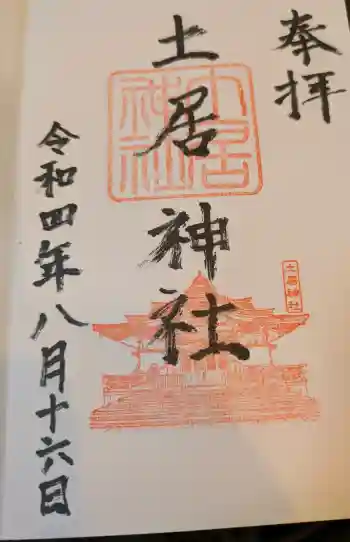 奉拝
土居神社
土居神社
土居神社
令和四年八月十六日